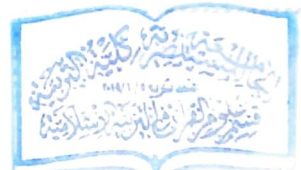 الجامعة المستنصرية / كلية التربية
قسم علوم القرآن والتربية الإسلامية